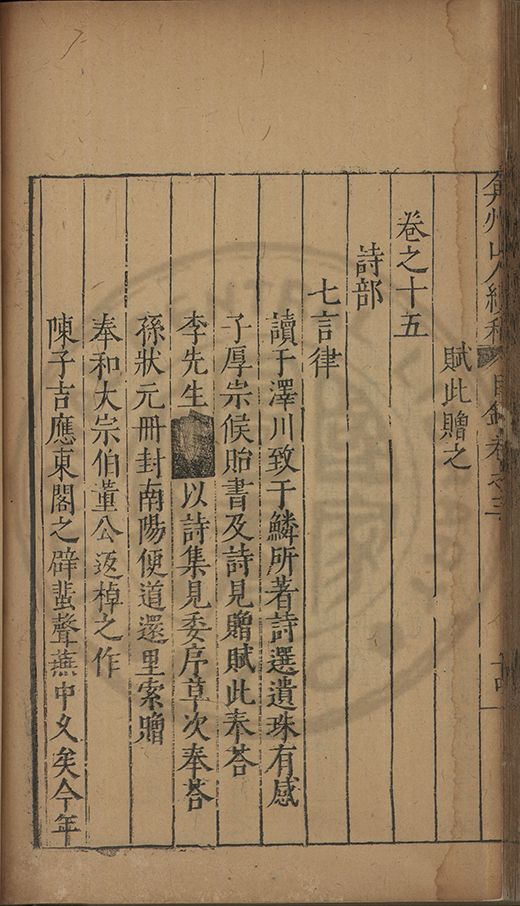 弇州山人續稿 目錄卷之三
賦此贈之
卷之十五
詩部
七言律
讀于澤川致于鱗所著詩選遺珠有感
子厚崇候貽書及詩見贈賦此奉荅
李先生 以詩集見委序草次奉荅
孫狀元冊封南陽便道還里索贈
奉和大宗伯董公返棹之作
陳子吉應東閣之辟蜚聲燕中久矣今年